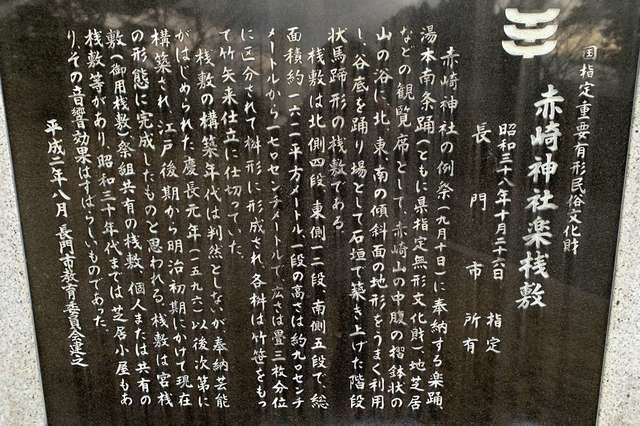 国指定重要有形民俗文化財
赤崎神社楽桟敷
昭和三十八年十月二十六日 指定
長門市 所有
赤崎神社の例祭(九月十日)に奉納する楽踊、
湯本南条踊(ともに県指定無形文化財)地芝居
などの観覧席として、赤崎山の中腹の摺鉢状の
山の浴に、北、東、南の傾斜面の地形をうまく利用
し、谷底を踊り場として石垣で築き上げた階段
状馬蹄形の桟敷である。
桟敷は北側四段、東側一二段、南側五段で、総
面積約一六二平方メートル、一段の高さは約九〇センチ
メートルから一七〇センチメートルで、広さは畳三枚分位
に区分されて桝形に形成され、各桝は竹笹をもっ
て竹矢来仕立に仕切っていた。
桟敷の構築年代は判然としないが、奉納芸能
がはじめられた慶長元年(一五九六)以後次第に
構築され、江戸後期から明治初期にかけて現在
の形態に完成したものと思われる。桟敷は宮桟
敷(御用桟敷)祭組共有の桟敷、個人または共有の
桟敷等があり、昭和三十年代までは芝居小屋もあ
り、その音響効果はすばらしいものであった。
平成二年八月 長門市教育委員会建之